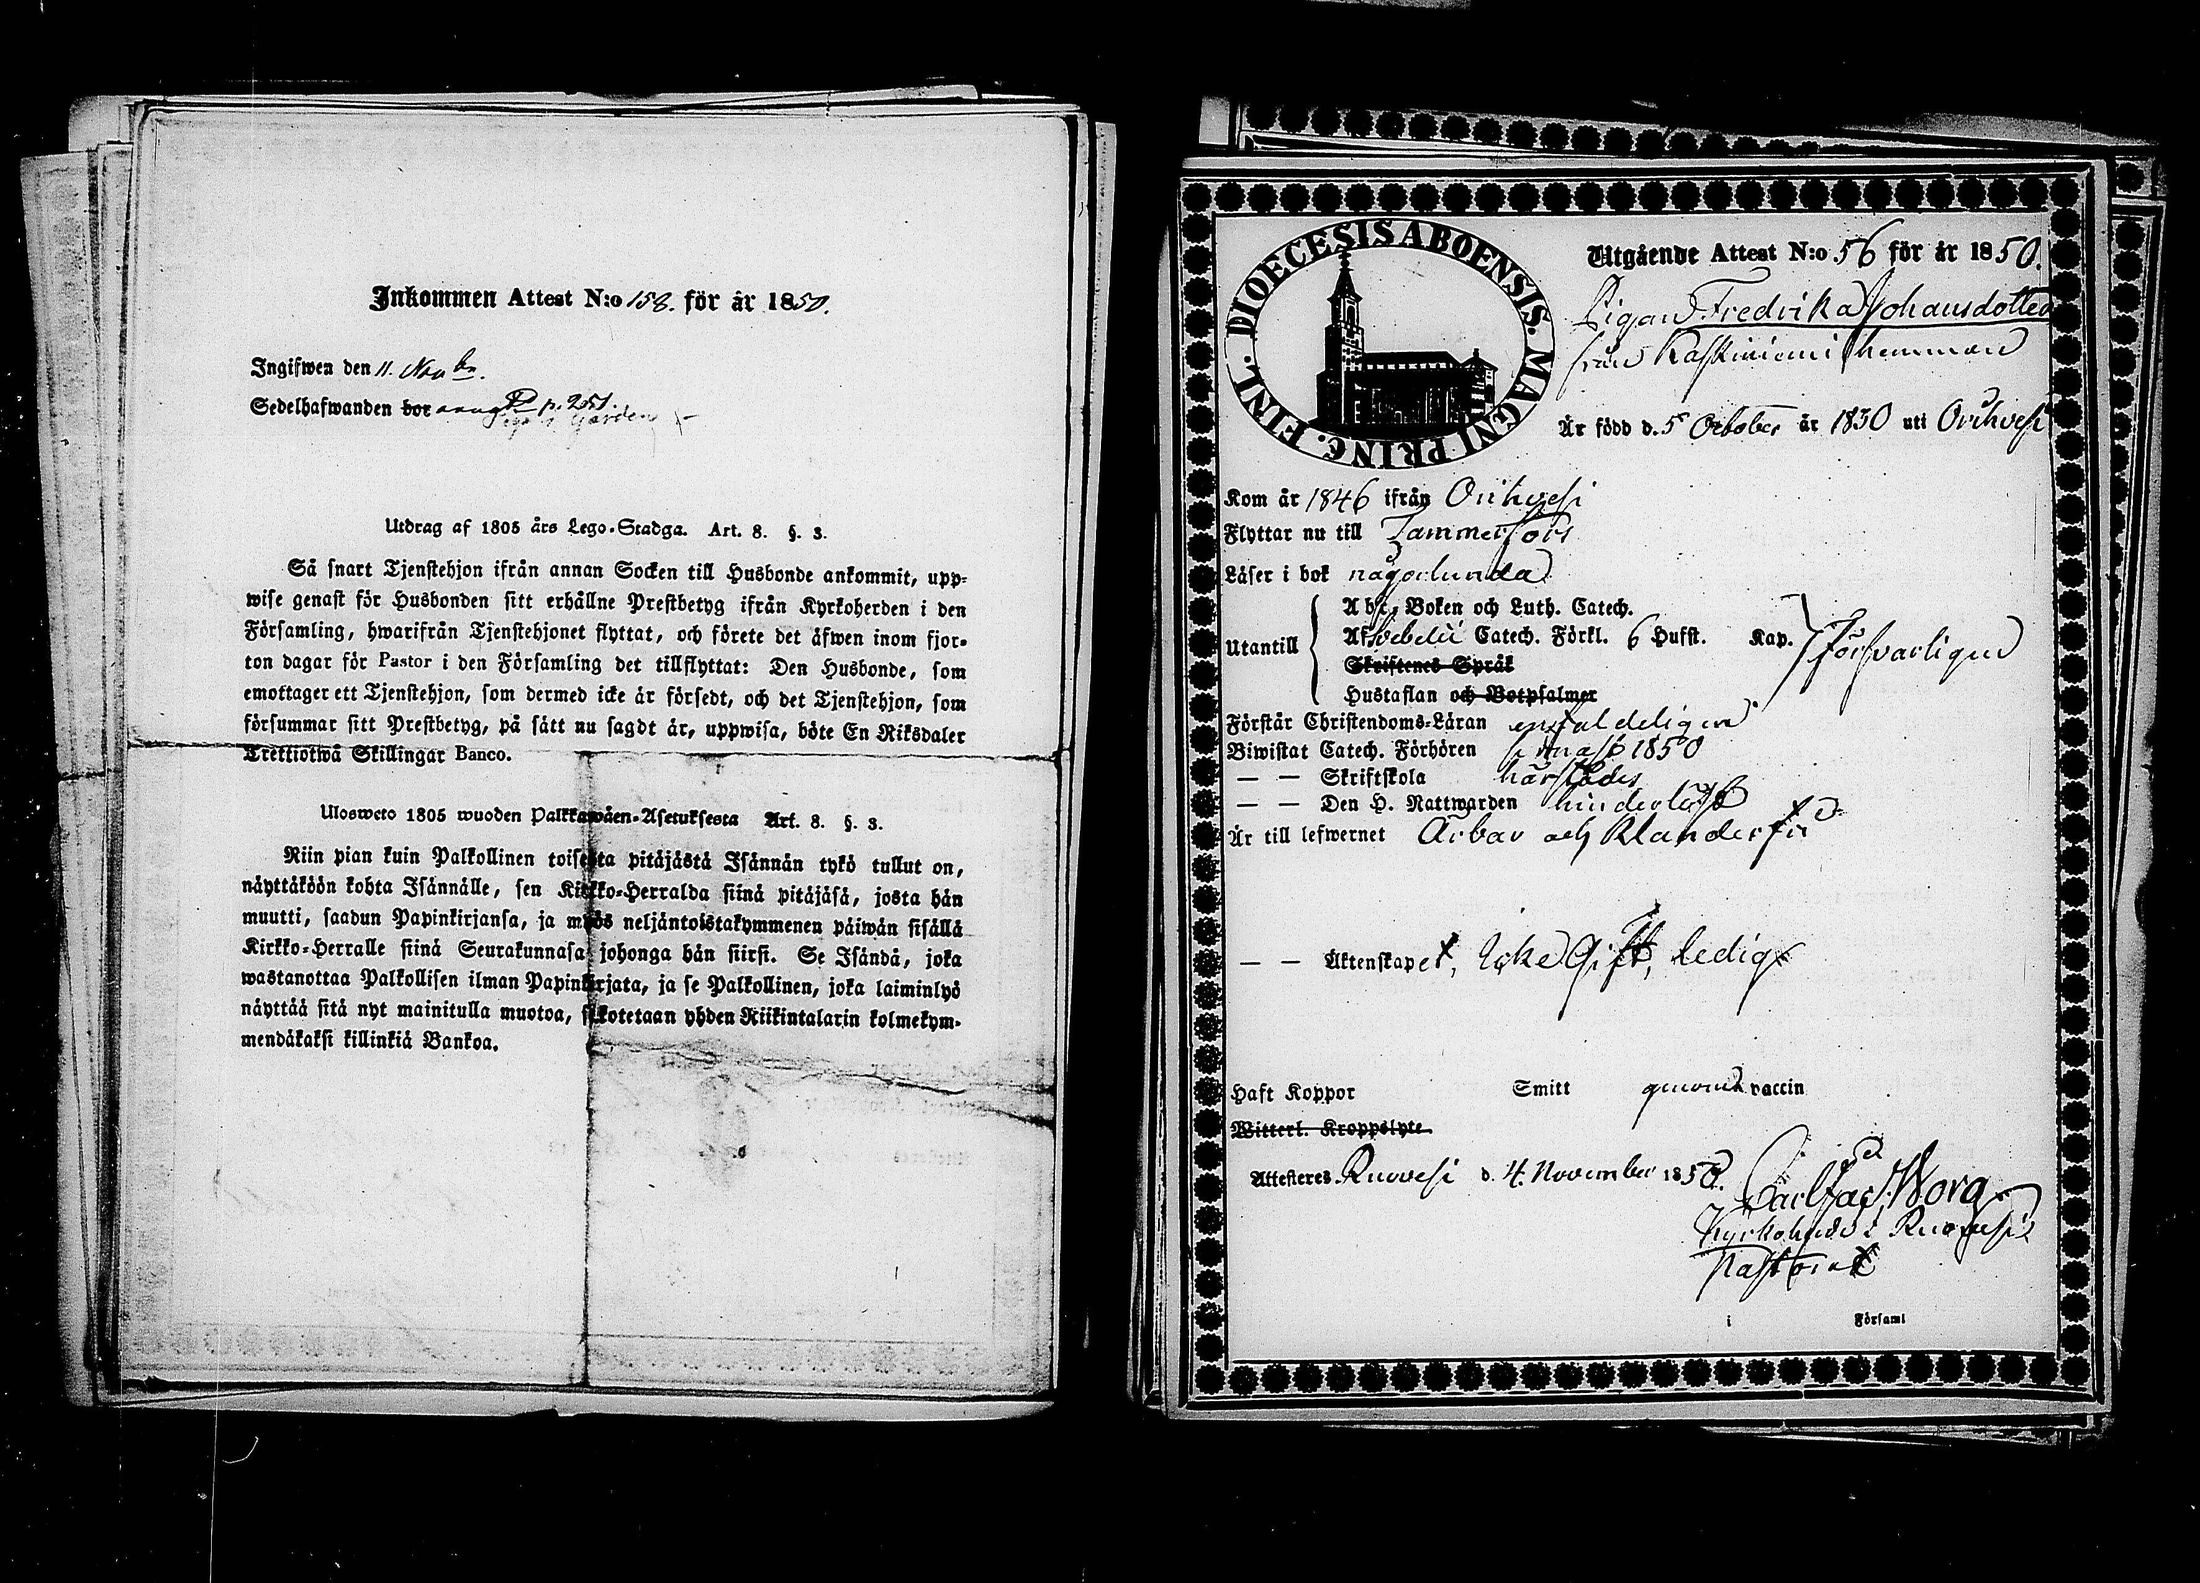 Inkommen Attest N:o 158. för år 1850.
Ingifwen den 11. Novbr.
Sedelhafwanden bor p. 251.
Utdrag af 1805 års Lego-Stadga. Art. 8. §. 3.
Så snart Tjenstehjon ifrån annan Socken till Husbonde ankommit, upp-
wise genast för Husbonden sitt erhållne Prestbetyg ifrån Kyrkoherden i den
Församling, hwarifrån Tjenstehjonet flyttat, och förete det äfwen inom fjor-
ton dagar för Pastor i den Församling det tillflyttat: Den Husbonde, som
emottager ett Tjenstehjon, som dermed icke är försedt, och det Tjenstehjon, som
försummar sitt Prestbetyg, på sätt nu sagdt är, uppwisa, böte En Riksdaler
Trettiotwå Skillingar Banco.
Ulosweto 1805 wuoden Palkkawäen-Asetuksesta Art. 8. §. 3.
Niin pian kuin Palkollinen toisesta pitäjästä Isännän tykö tullut on,
näyttäköön kohta Isännälle, sen Kirkko-Herralda siinä pitäjäsä, josta hän
muutti, saadun Papinkirjansa, ja myös neljäntoistakymmenen päiwän sisällä
Kirkko-Herralle siinä Seurakunnasa johonga hän siirsi. Se Isändä, joka
wastanottaa Palkollisen ilman Papinkirjata, ja se Palkollinen, joka laiminlyö
näyttää sitä nyt mainitulla muotoa, sakotetaan yhden Riikintalarin kolmekym-
mendäkaksi killinkiä Bankoa.
DIOECESIS ABOENSIS. MAGNI PRINC. FINL.
Utgående Attest N:o 56 för år 1850.
Pigan Fredrika Johansdotter
från Kaskiniemi hemman
Är född d. 5 October år 1830 uti Orihvesi
Kom år 1846 ifrån Orihvesi
Flyttar nu till Tammerfors
Läser i bok någorlunda
Utantill
Abc, Boken och Luth. Catech.
Af Svebelii Catech. Förkl. 6 Hufst. Kap. Försvarligen
Skriftenes Språk
Hustaflan och Botpsalmer
Förstår Christendoms-Läran enfaldeligen
Biwistat Catech. Förhören sednast 1850
— — Skriftskola härstädes
— — Den H. Nattwarden hinderlöst
Är till lefwernet Ärbar och Klanderfri
— — Äktenskapet, Icke Gift, ledig
Haft Koppor Smitt genom vaccin
Witterl. Kroppslyte
Attesteres Ruovesi d. 4. November 1850.
Carl Jac. Worg
Kyrkoherde i Ruovesi
Pastorat
i Församl